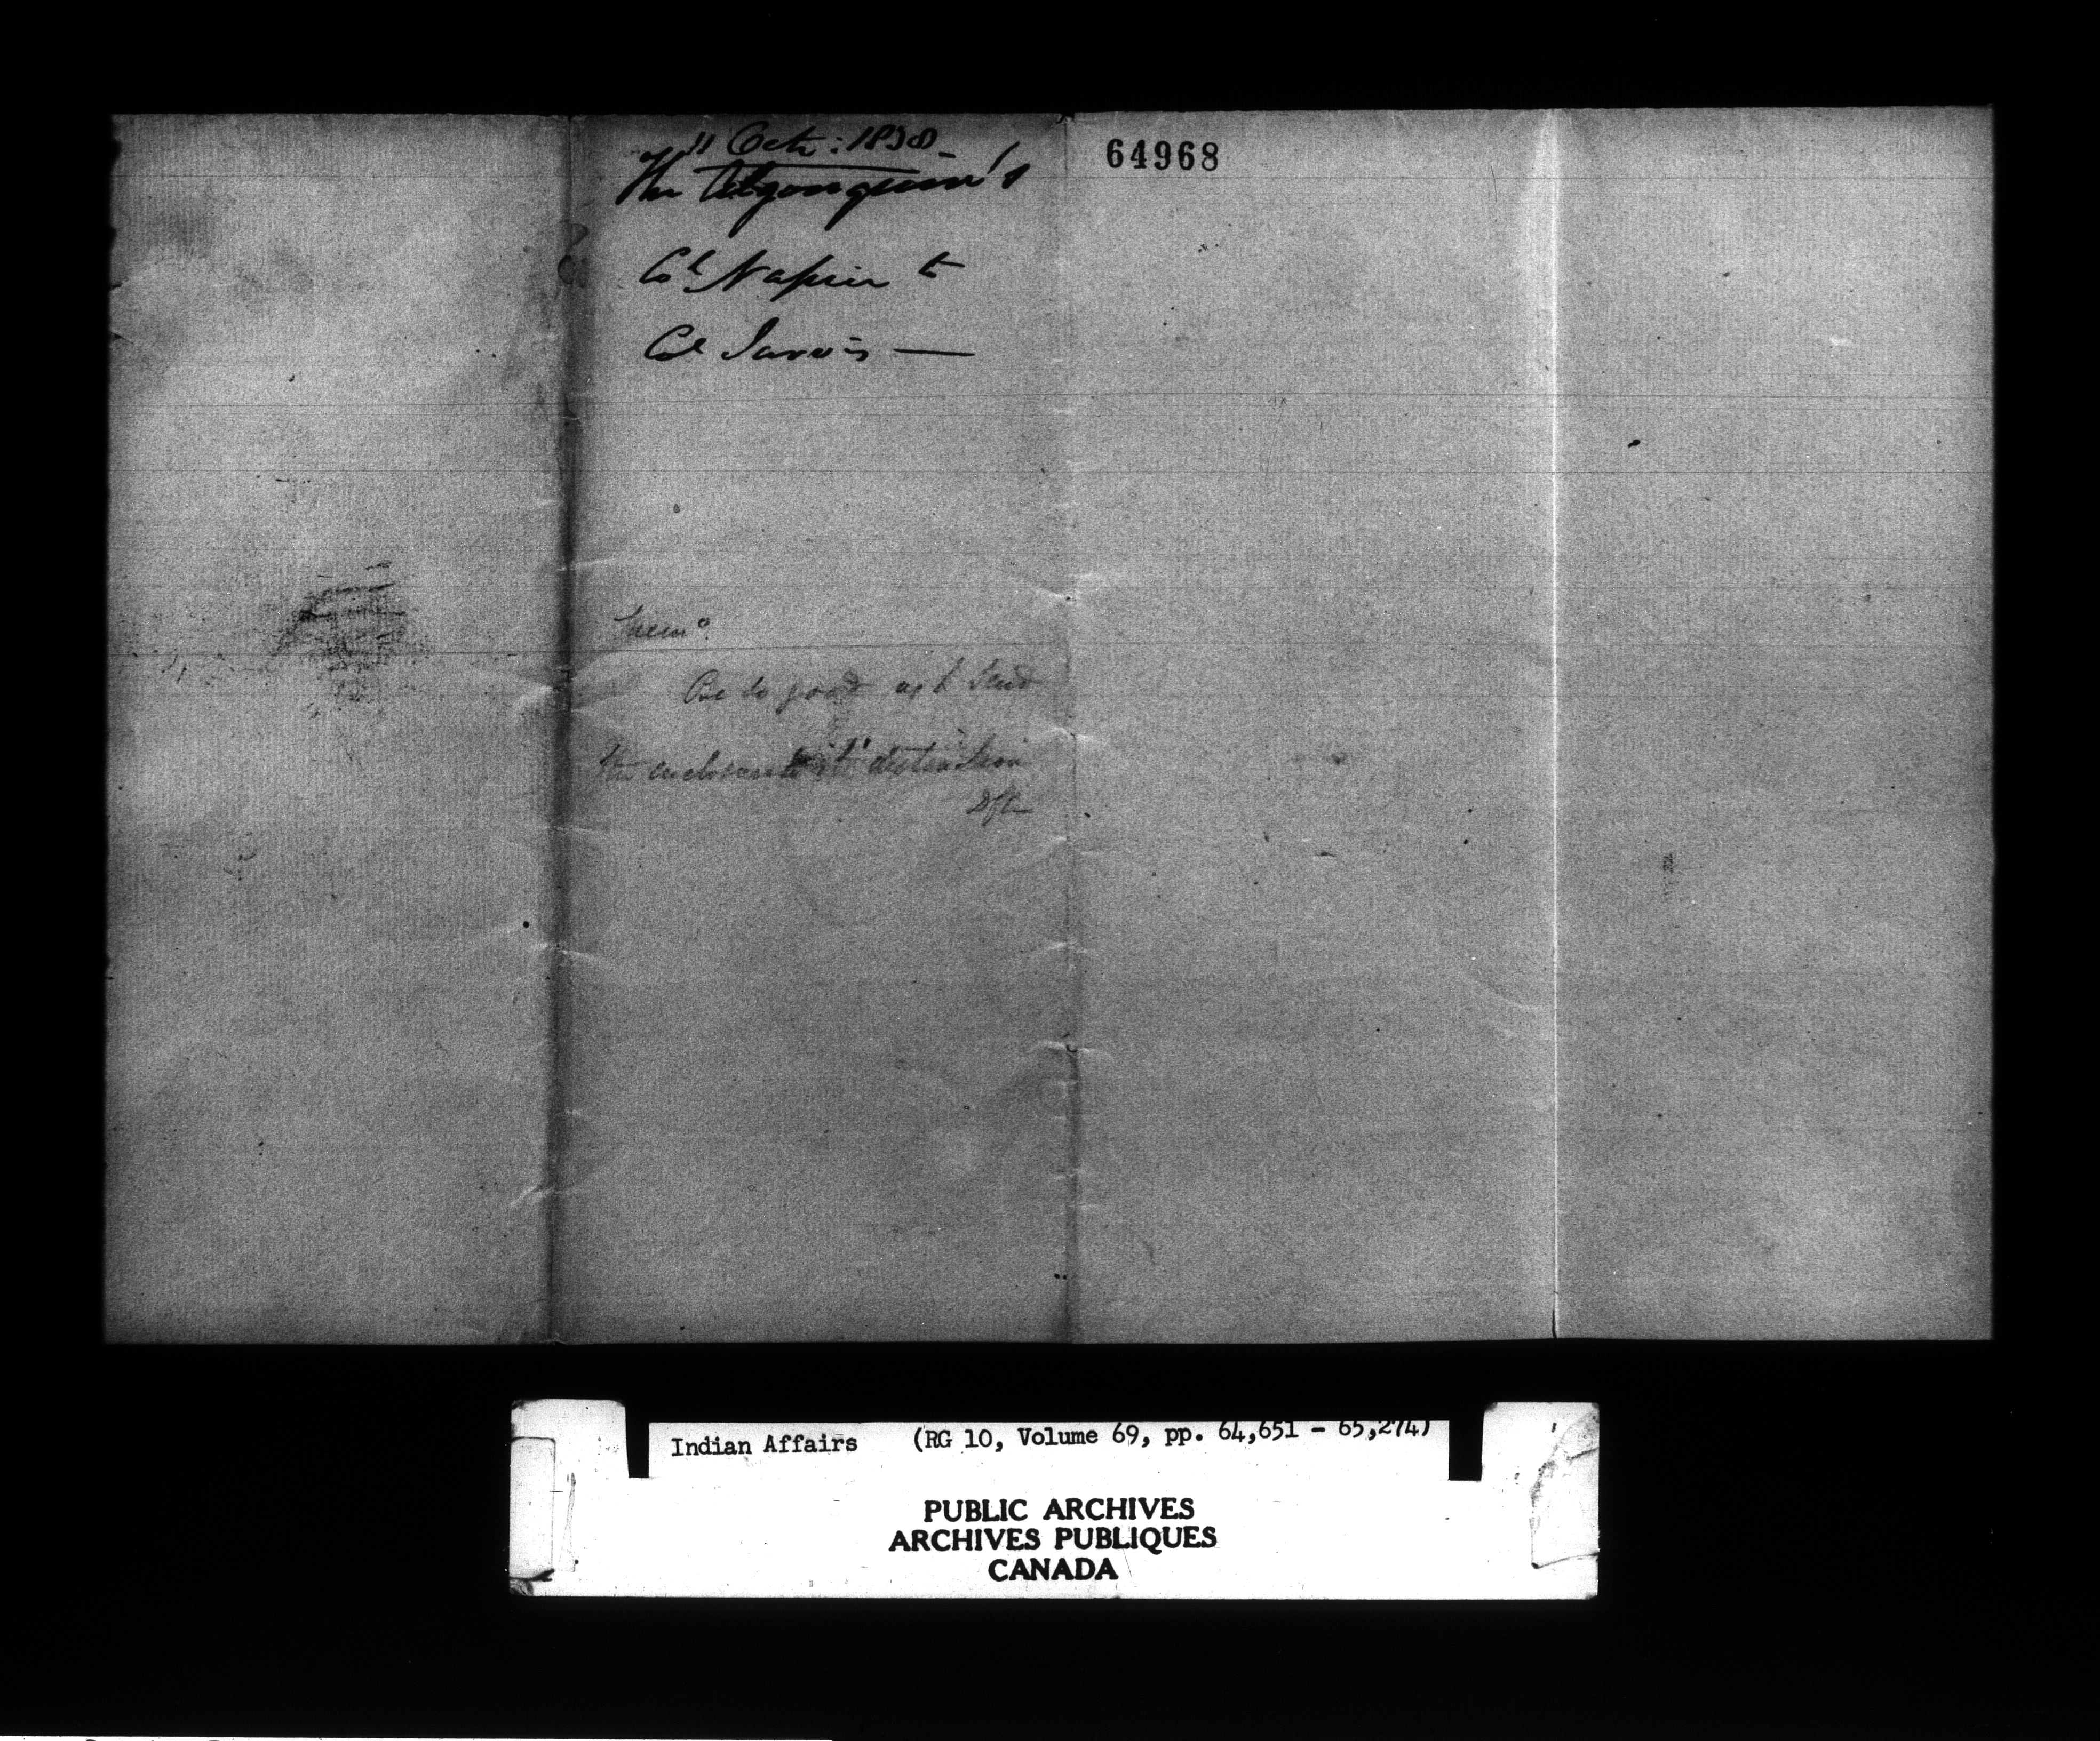 11 Oct: 1838
The Algonquin's
Col Napier to
Col Jarvis —
64968
Memo.
Be so good as to send
the enclosure to it's destination
Indian Affairs (RG 10, Volume 69, pp. 64,651 - 65,274)
PUBLIC ARCHIVES
ARCHIVES PUBLIQUES
CANADA